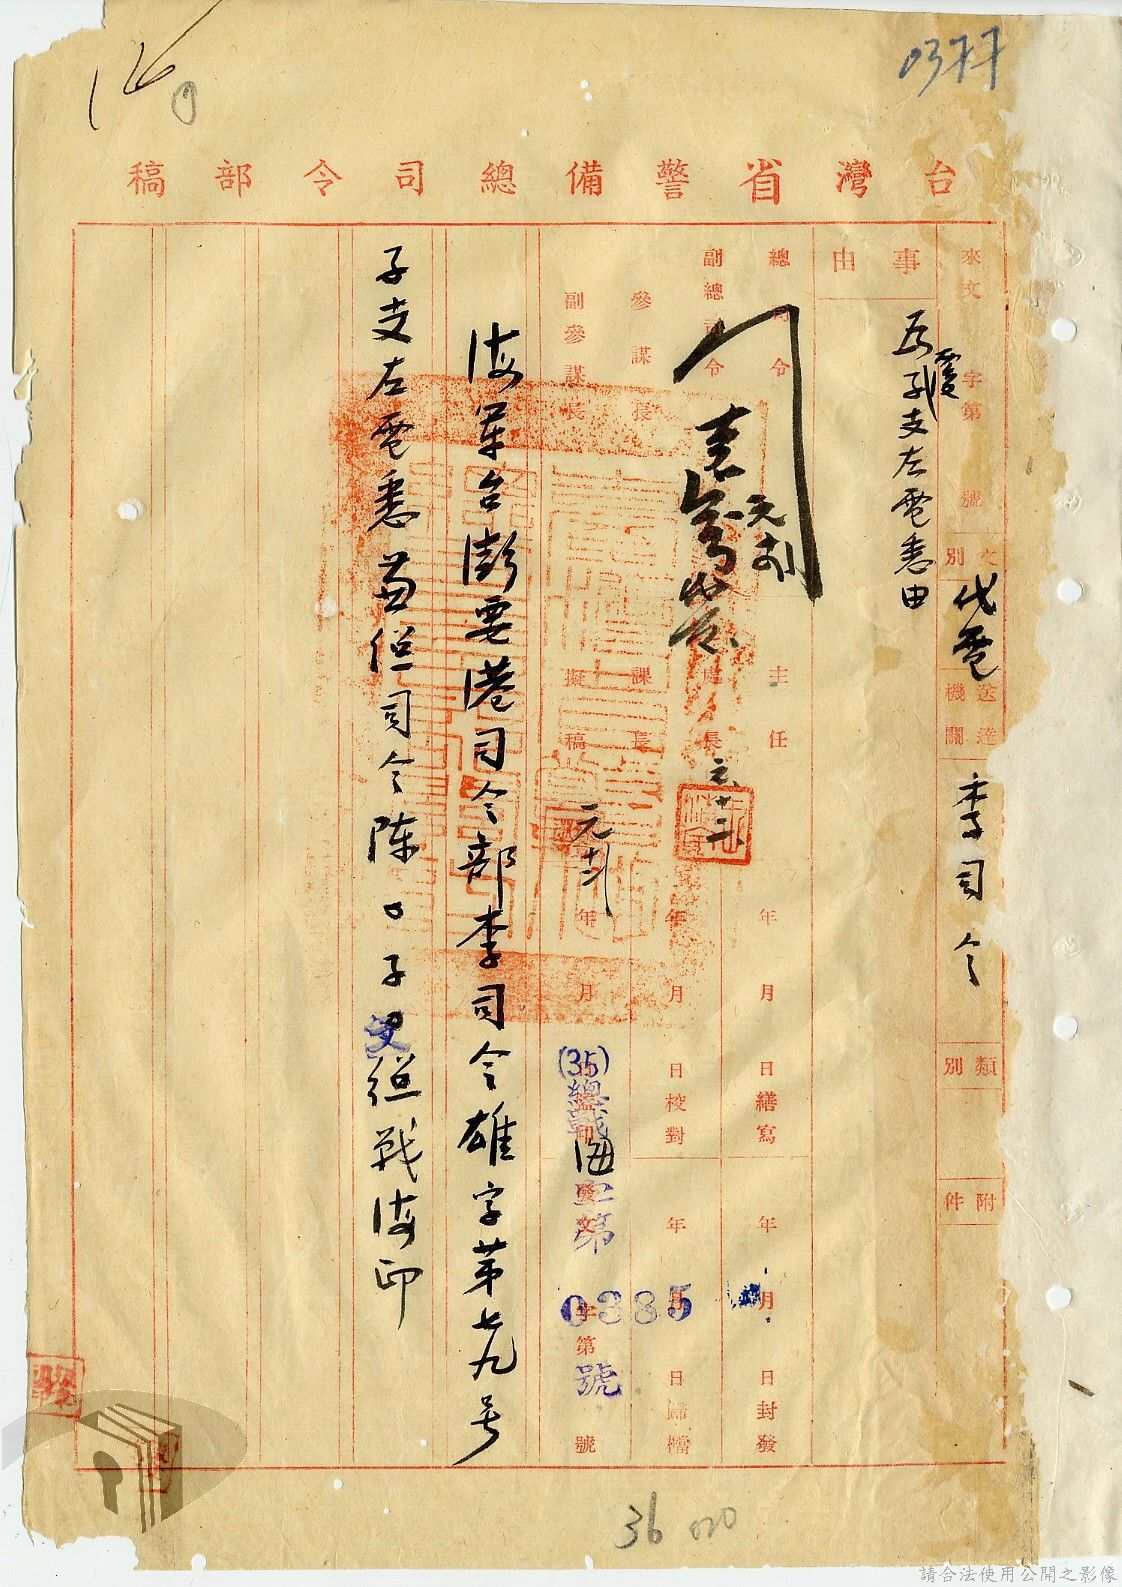 0377
台灣省警備總司令部稿
來文 字第 號
文別 代電
送達機關 李司令
類別
附件
事由
為覆子支左電悉由
總司令
副總司令
參謀長
副參謀長
元
主任
處長 元十二
課長
擬稿 元十二
年 月 日繕寫
年 月 日校對
年 月 日封發
年 月 日歸檔
(35)總戰海字第
0385
號
字第 號
海軍台澎要港司令部李司令雄字第七九号
子支左電悉兼總司令陳 子 總戰海印
36
請合法使用公開之影像